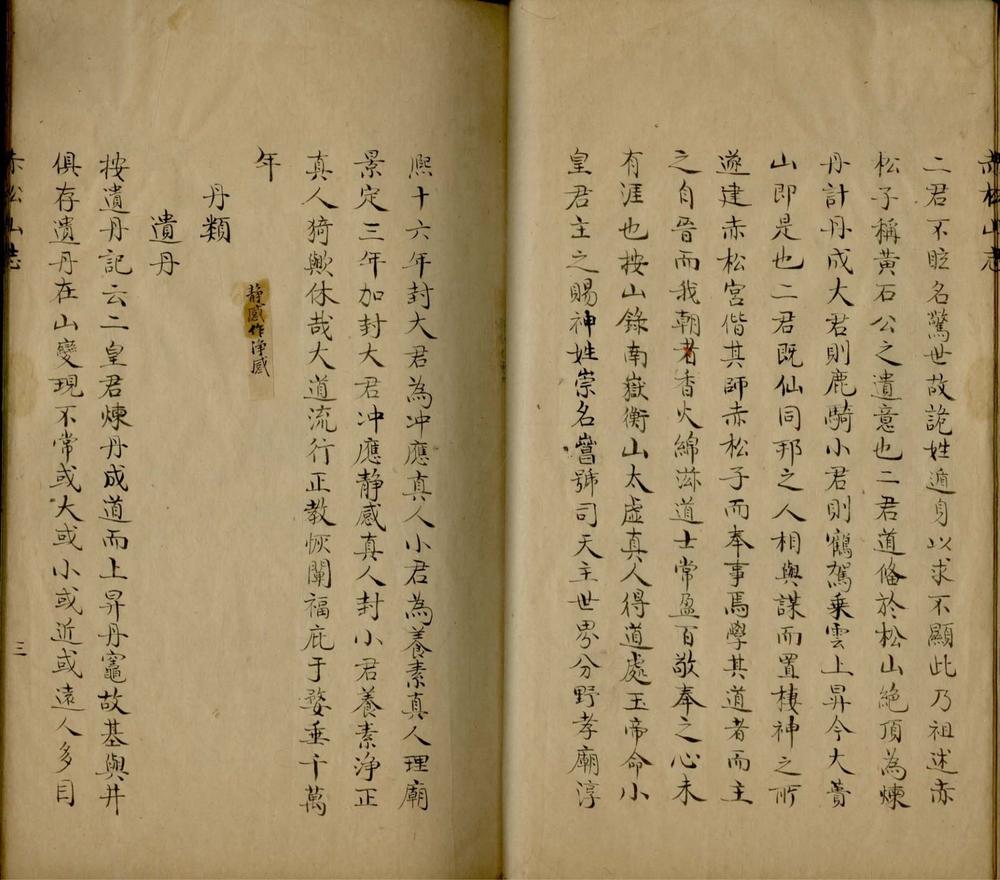 赤松山志
二君不眩名驚世故詭姓遁身以求不顯此乃祖述赤
松子稱黃石公之遺意也二君道備於松山絶頂為煉
丹計丹成大君則鹿騎小君則鶴駕乘雲上昇今大蕢
山即是也二君既仙同邦之人相與謀而置棲神之所
遂建赤松宮偕其師赤松子而奉事焉學其道者而主
之自晉而我朝香火綿滋道士常盈百敬奉之心未
有涯也按山錄南嶽衡山太虛真人得道處玉帝命小
皇君主之賜神姓崇名嘗號司天主世界分野孝廟淳
熈十六年封大君為冲應真人小君為養素真人理廟
景定三年加封大君冲應静感真人封小君養素淨正
真人猗歟休哉大道流行正教恢闡福庇于婺垂千萬
年
静感作淨感
丹類
遺丹
按遺丹記云二皇君煉丹成道而上昇丹竈故基與井
俱存遺丹在山變現不常或大或小或近或遠人多目
赤松山志
三